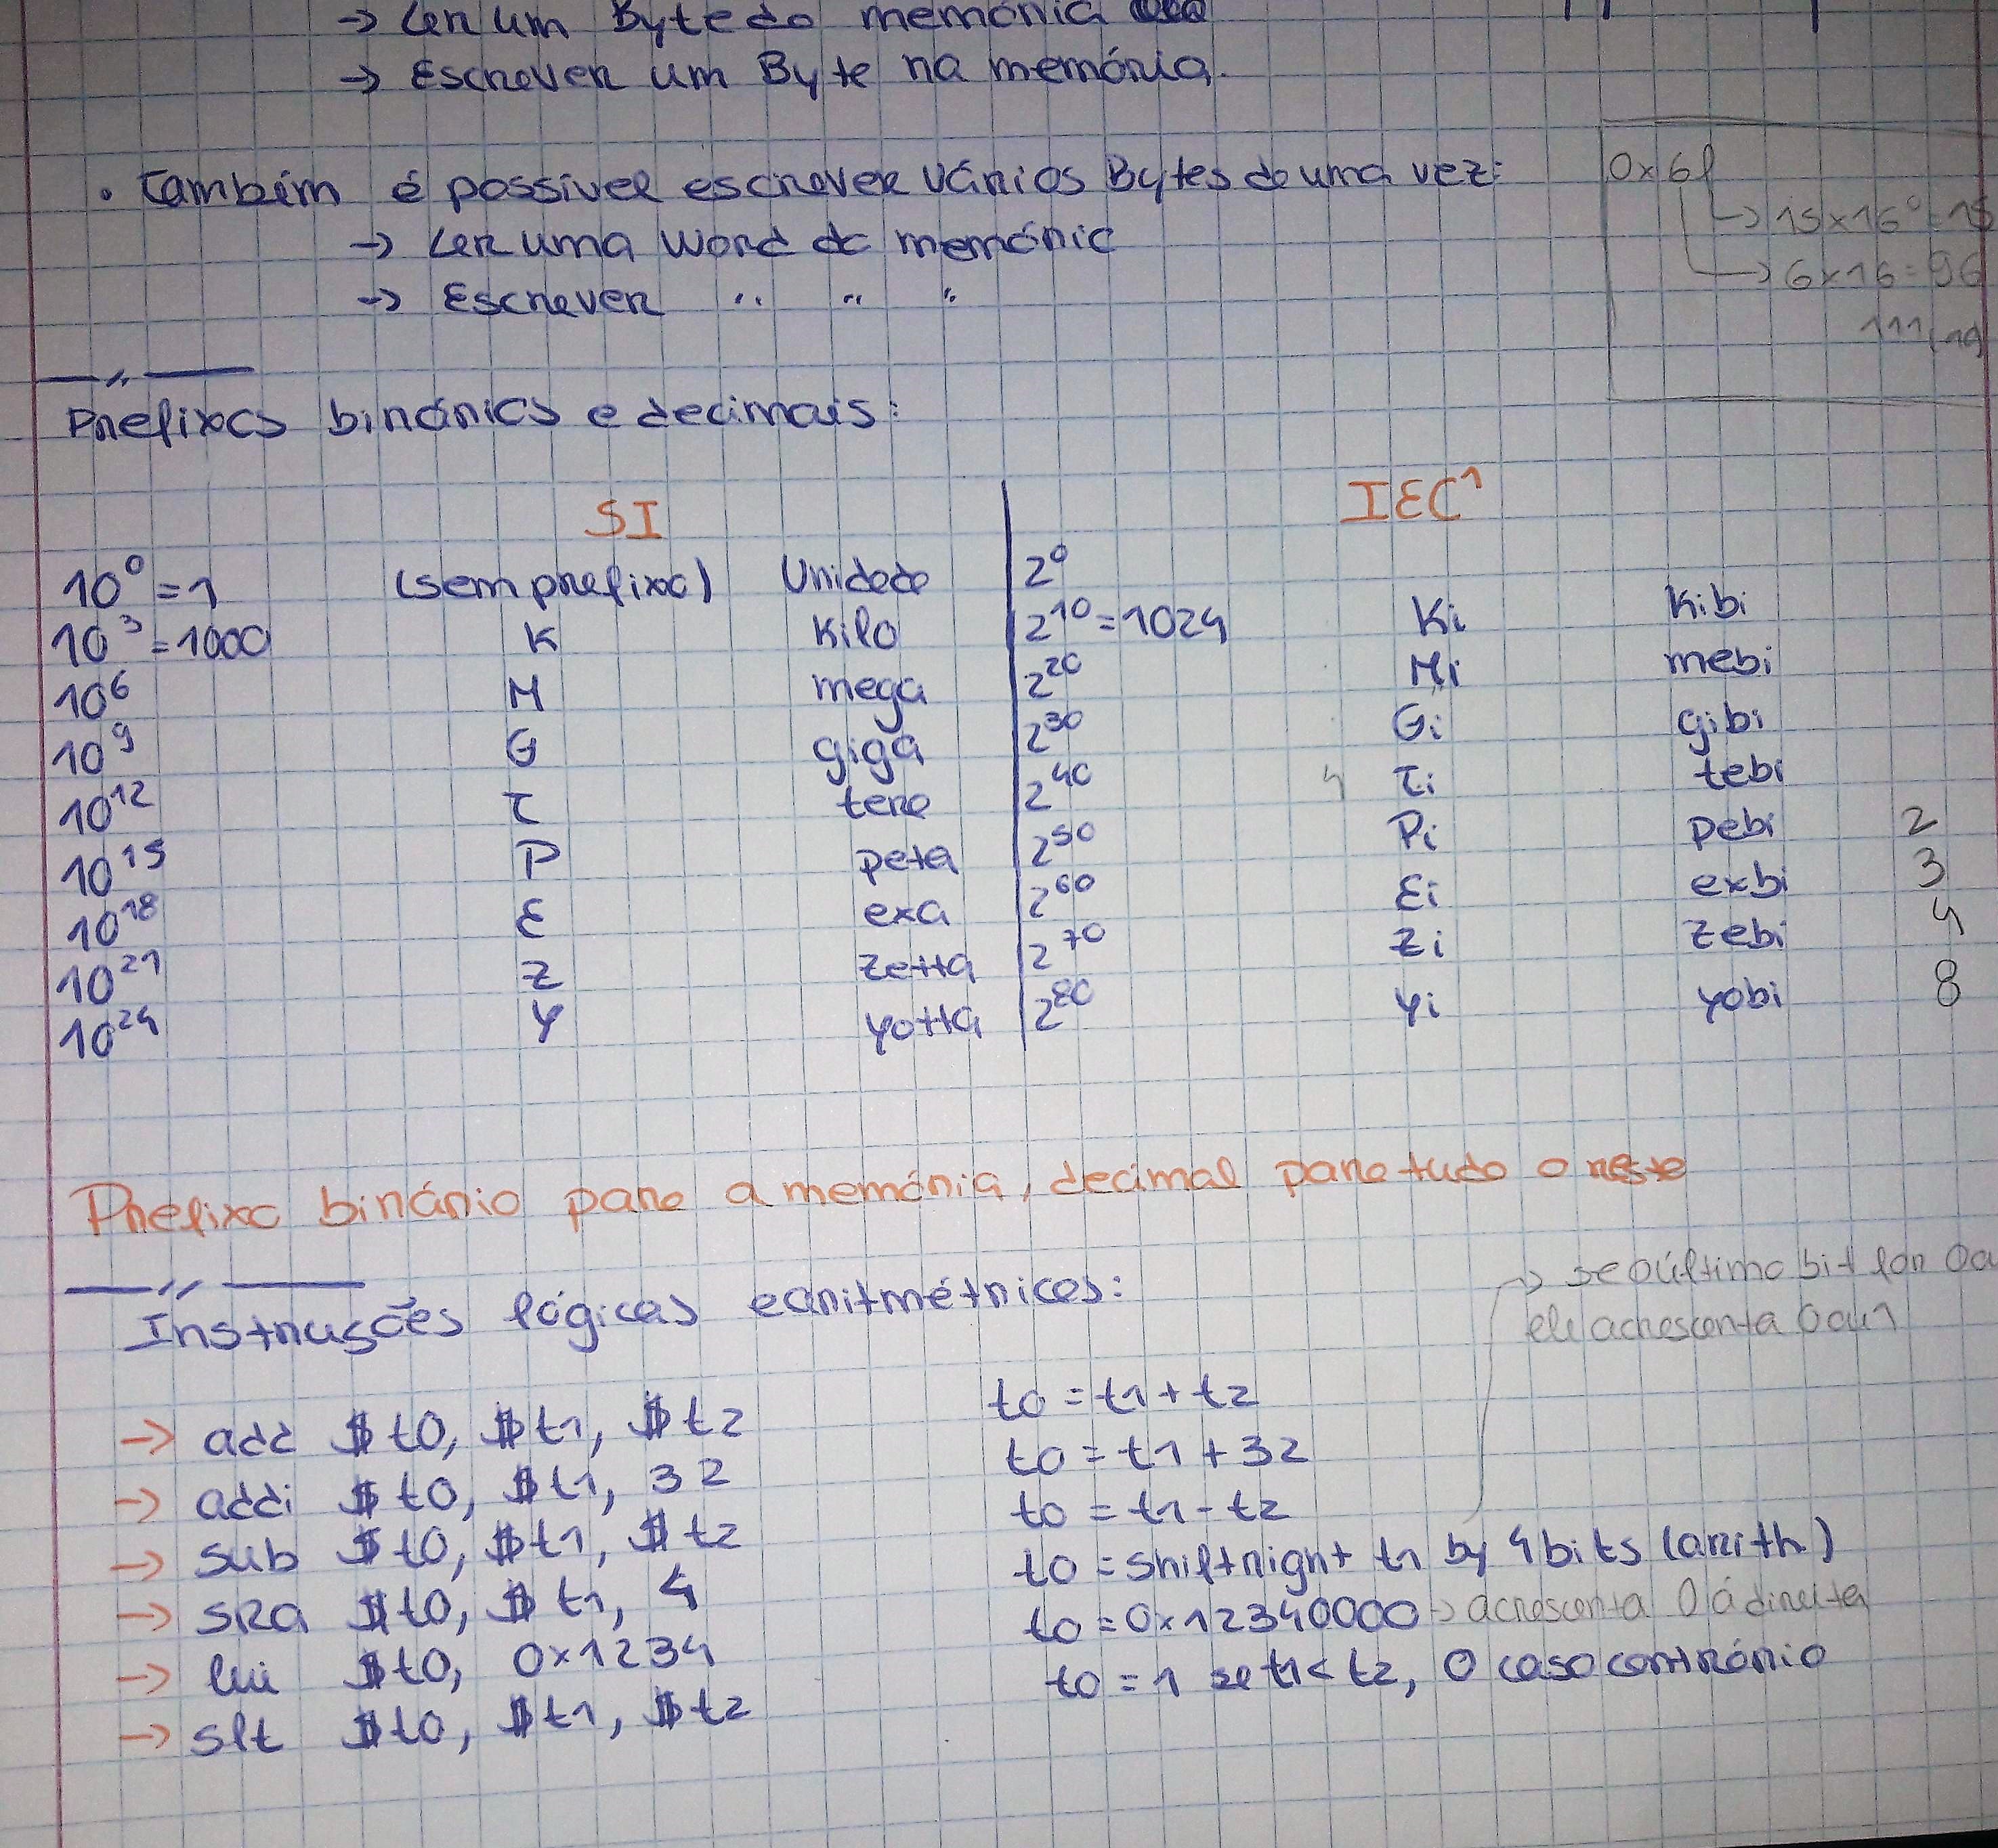 → Ler um Byte da memória
→ Escrever um Byte na memória.
• Também é possível escrever vários Bytes de uma vez:
→ Ler uma word da memória
→ Escrever " " "
0x6f
→ 15x16⁰=15
→ 6x16=96
111(10)
Prefixos binários e decimais:
SI IEC¹
10⁰=1 (sem prefixo) Unidade 2⁰
10³=1000 K Kilo 2¹⁰=1024 Ki Kibi
10⁶ M mega 2²⁰ Mi mebi
10⁹ G giga 2³⁰ Gi gibi
10¹² T tera 2⁴⁰ 4 Ti tebi
10¹⁵ P peta 2⁵⁰ Pi pebi 2
10¹⁸ E exa 2⁶⁰ Ei exbi 3
10²¹ Z zetta 2⁷⁰ Zi zebi 4
10²⁴ Y yotta 2⁸⁰ Yi yobi 8
Prefixo binário para a memória, decimal para tudo o resto
→ se o último bit for 0 ou
ele acrescenta 0 ou 1
Instruções lógicas e aritmétricas:
→ add $t0, $t1, $t2 t0 = t1 + t2
→ addi $t0, $t1, 32 t0 = t1 + 32
→ sub $t0, $t1, $t2 t0 = t1 - t2
→ sra $t0, $t1, 4 t0 = shift right t1 by 4 bits (arith)
→ lui $t0, 0x1234 t0 = 0x12340000 → acrescenta 0 á direita
→ slt $t0, $t1, $t2 t0 = 1 se t1 < t2, 0 caso contrário